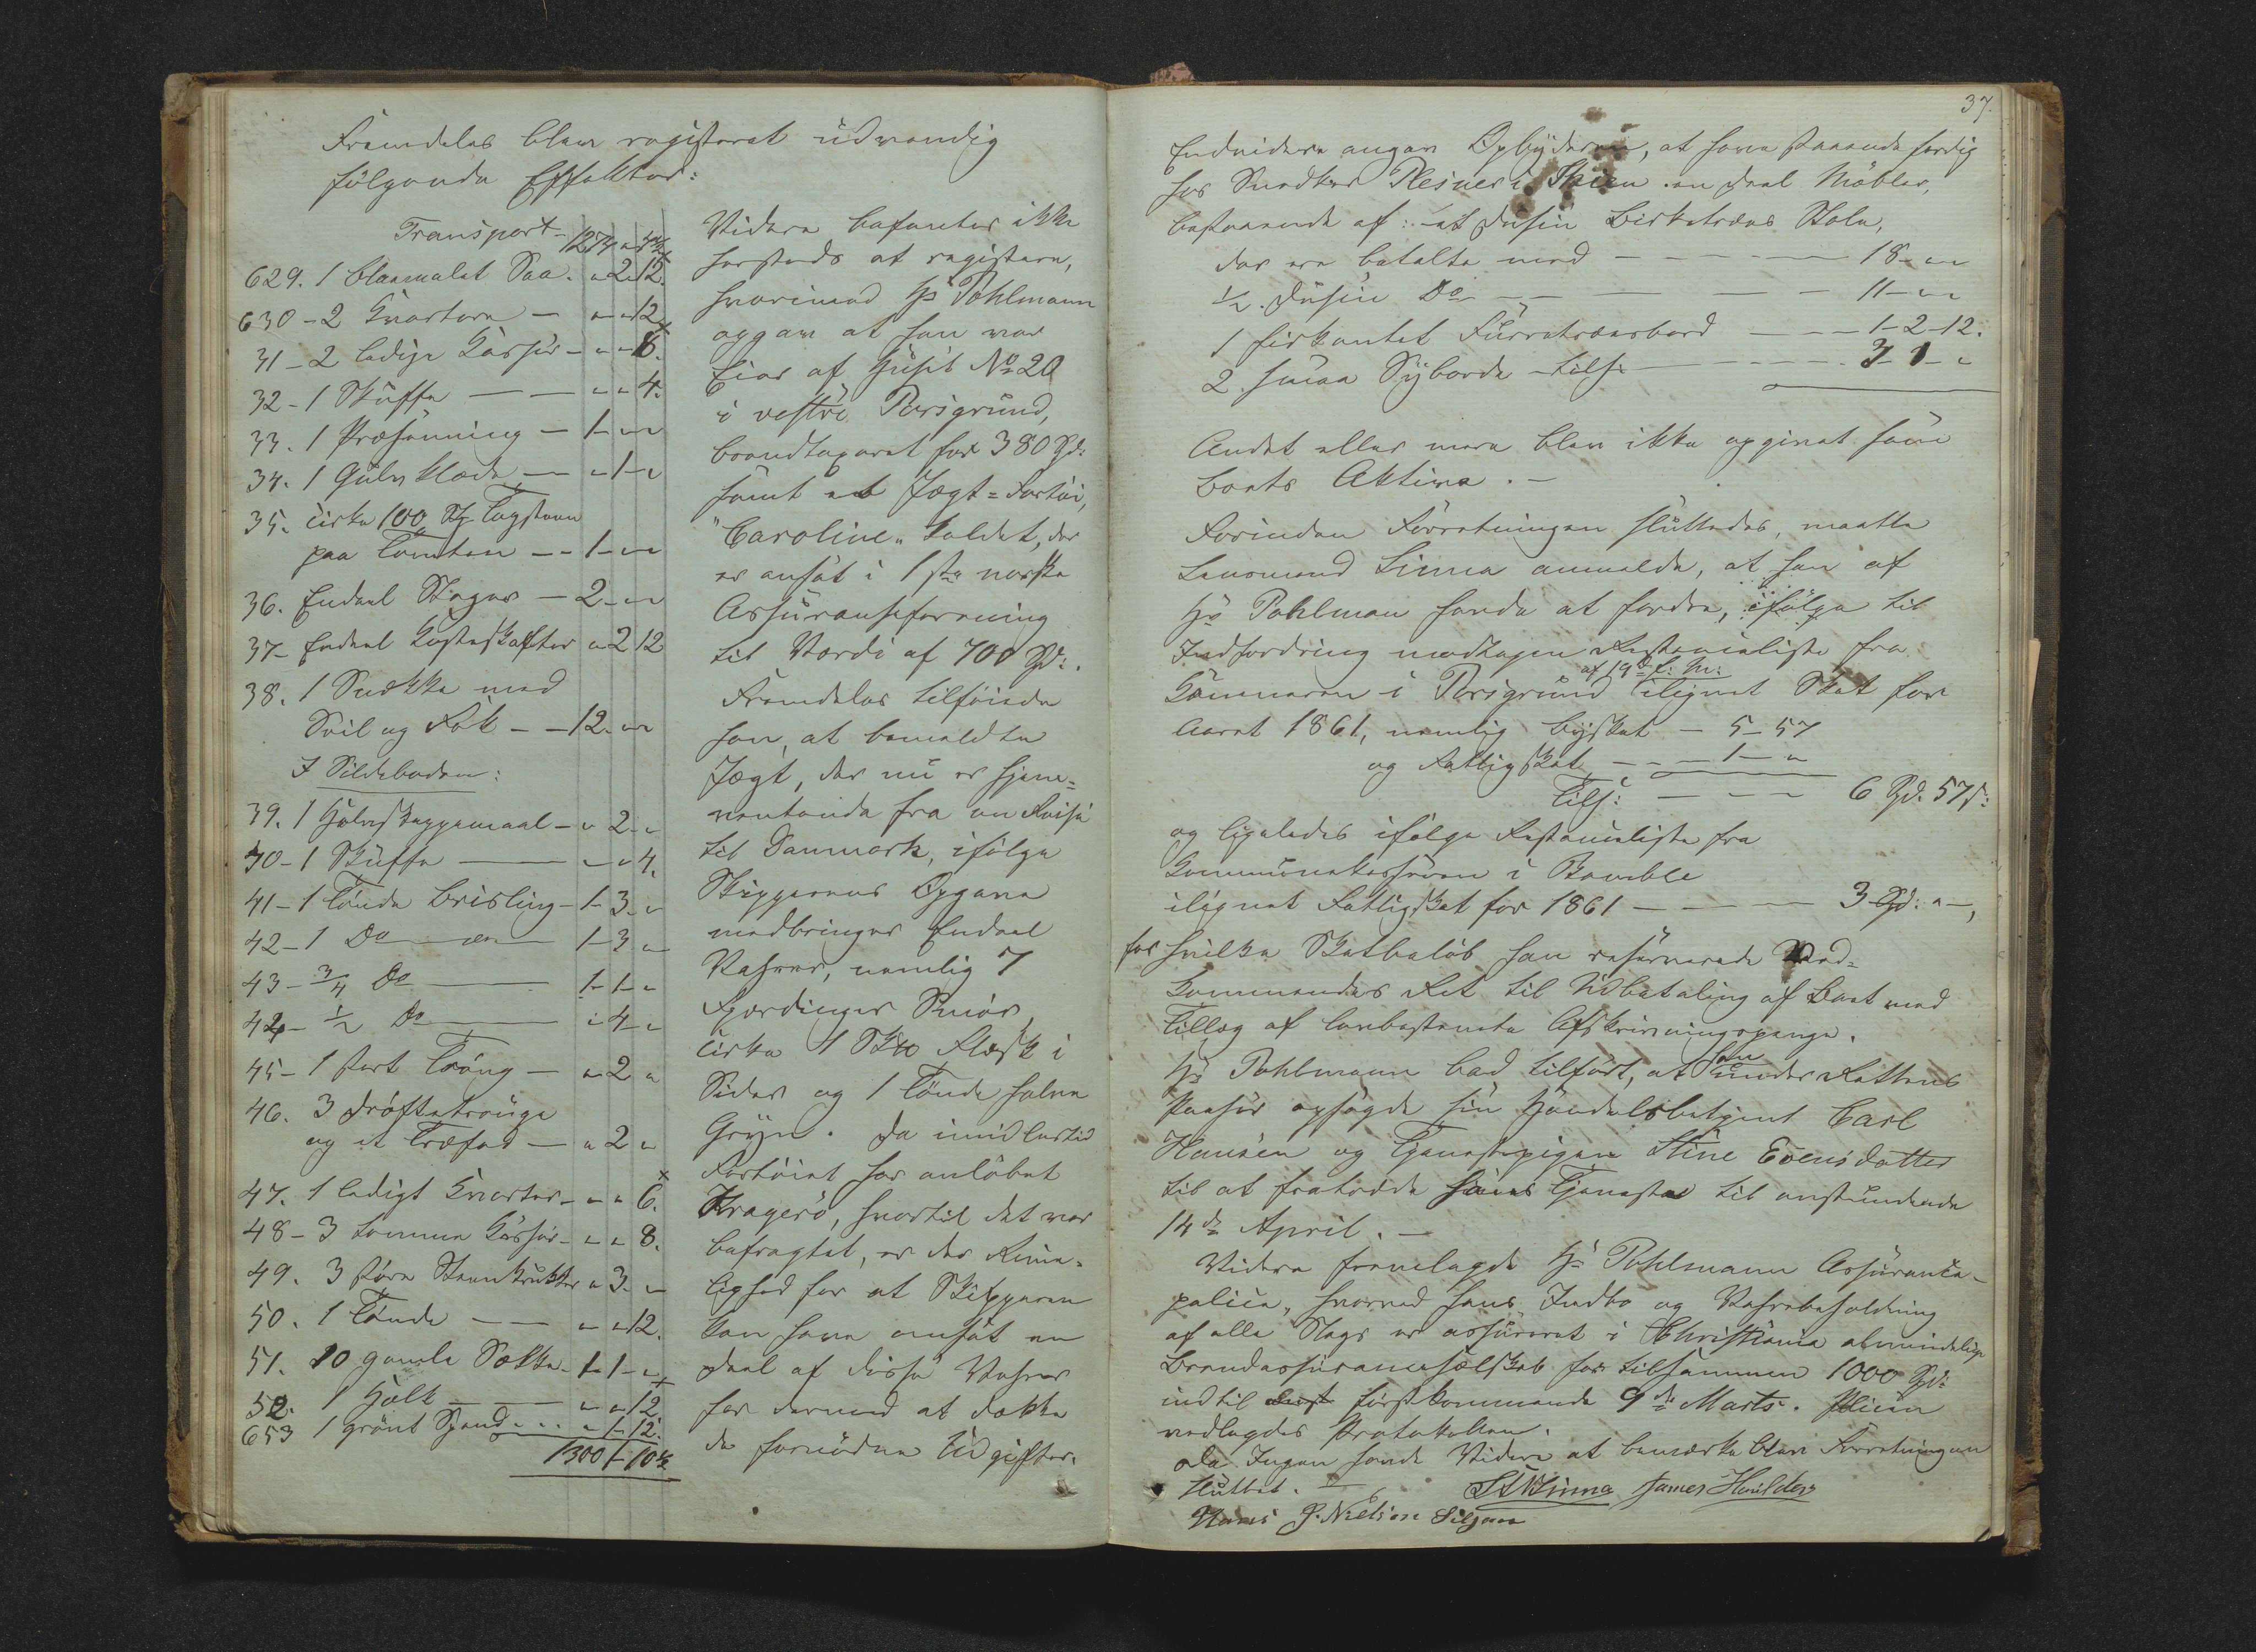 Fremdeles blev registeret udvendig
følgende Effekter:
Transport - 1274 "
629. 1 blaamalet Saa. " 2 12.
630 - 2 Qvartere - " " 12
31 - 2 ledige Kasser - " " 8.
32 - 1 Skuffe - - " " 4.
33. 1 Presenning - 1 - " "
34. 1 Gulvklæde - " 1 - "
35. cirka 100 St. Tagsteen
paa Tomten - - 1 - " "
36. Endeel Stager - 2 - " "
37 - Endeel Kosteskafter " 2 12
38. 1 Snekke med
Seil og Fok - - 12 - " "
I Sildeboden:
39. 1 Halvskjeppemaal - " 2 - "
40 - 1 Skuffe - " " 4.
41 - 1 Tønde Brisling - 1 - 3 - "
42 - 1 Do - 1 - 3 "
43 - 3/4 Do - 1 - 1 - "
44 - 1/2 Do - " 4 - "
45 - 1 stort Traug - " 2 "
46. 3 Drøftetrauge
og et Træfad - " 2 "
47. 1 ledigt Qvarter - " " 6.
48 - 3 tomme Kasser - " " 8.
49. 3 store Steenkrukker " 3 - "
50. 1 Tønde - - " " 12.
51. 10 gamle Sække - 1 - 1 - "
52. 1 Holk - " " 12
653 1 grønt Spand - " 1 - 12.
1300 1 - 10½
Videre befantes ikke
hersteds at registere,
hvorimod Hr Pohlmann
opgav at han var
Eier af Huset No 20
i vestre Porsgrund,
brandtaxeret for 380 Spd:
samt et Jægt-Fartøi,
"Caroline" kaldet, der
er ansat i 1ste norske
Assuranseforening
til Værdi af 700 Spd:.
Fremdeles tilføiede
han, at bemeldte
Jægt, der nu er hjem-
ventende fra en Reise
til Danmark, ifølge
Skipperens Opgave
medbringer Endeel
Vahrer, nemlig 7
Fjerdinger Smør,
cirka 1 Sk℔ Flesk i
Sider og 1 Tønde halve
Gryn. Da imidlertid
Fartøiet har anløbet
Kragerø, hvortil det var
befragtet, er der Rime-
lighed for at Skipperen
kan have omsat en
Deel af disse Vahrer
for dermed at dække
de fornødne Udgifter.
37.
Endvidere angav Opbyderen, at have staaende færdig
hos Snedker Plesner i Skien en Deel Møbler,
bestaaende af: et Dusin Birketræes Stole,
der ere betalte med - - - 18 - " "
½ Dusin Do - - - 11 - " "
1 firkantet Furretræesbord - - 1 - 2 - 12.
2 smaa Syborde tils: - - - 3 - 1 - "
Andet eller mere blev ikke opgivet som
Boets Aktiva. -
Forinden Forretningen sluttedes, maatte
Lensmand Linna anmelde, at han af
Hr Pohlman havde at fordre, ifølge til
Indfordring modtagen Restanceliste fra
af 19de f: M:
Kæmneren i Porsgrund ilignet Skat for
Aaret 1861, nemlig Byskat - 5 - 57
og Fattigskat - - 1 - "
Tils: - - - 6 Spd. 57 s:
og ligeledes ifølge Restanceliste fra
Kommunekassereren i Bamble
ilignet Fattigskat for 1861 - - - 3 Spd: " -,
for hvilke Skattebeløb han reserverede Ved-
kommendes Ret til Udbetaling af Boet med
Tillæg af lovbestemte Afskrivningspenge.
Hr Pohlmann bad tilført, at han under Rettens
Paahør opsagde sin Handelsbetjent Carl
Hansen og Tjenestepigen Stine Evensdatter
til at fratræde hans Tjeneste til anstundende
14de April. -
Videre fremlagde Hr Pohlmann Assurance-
police, hvorved hans Indbo og Vahrebeholdning
af alle Slags er assureret i Christiania almindelige
Brandassuranceselskab for tilsammen 1000 Spd:
indtil førstkommende 9de Marts. Policen
vedlagdes Protokollen.
Da Ingen havde Videre at bemærke blev Forretningen
sluttet. -
Linna James
Hans P. Nielsen Siljan